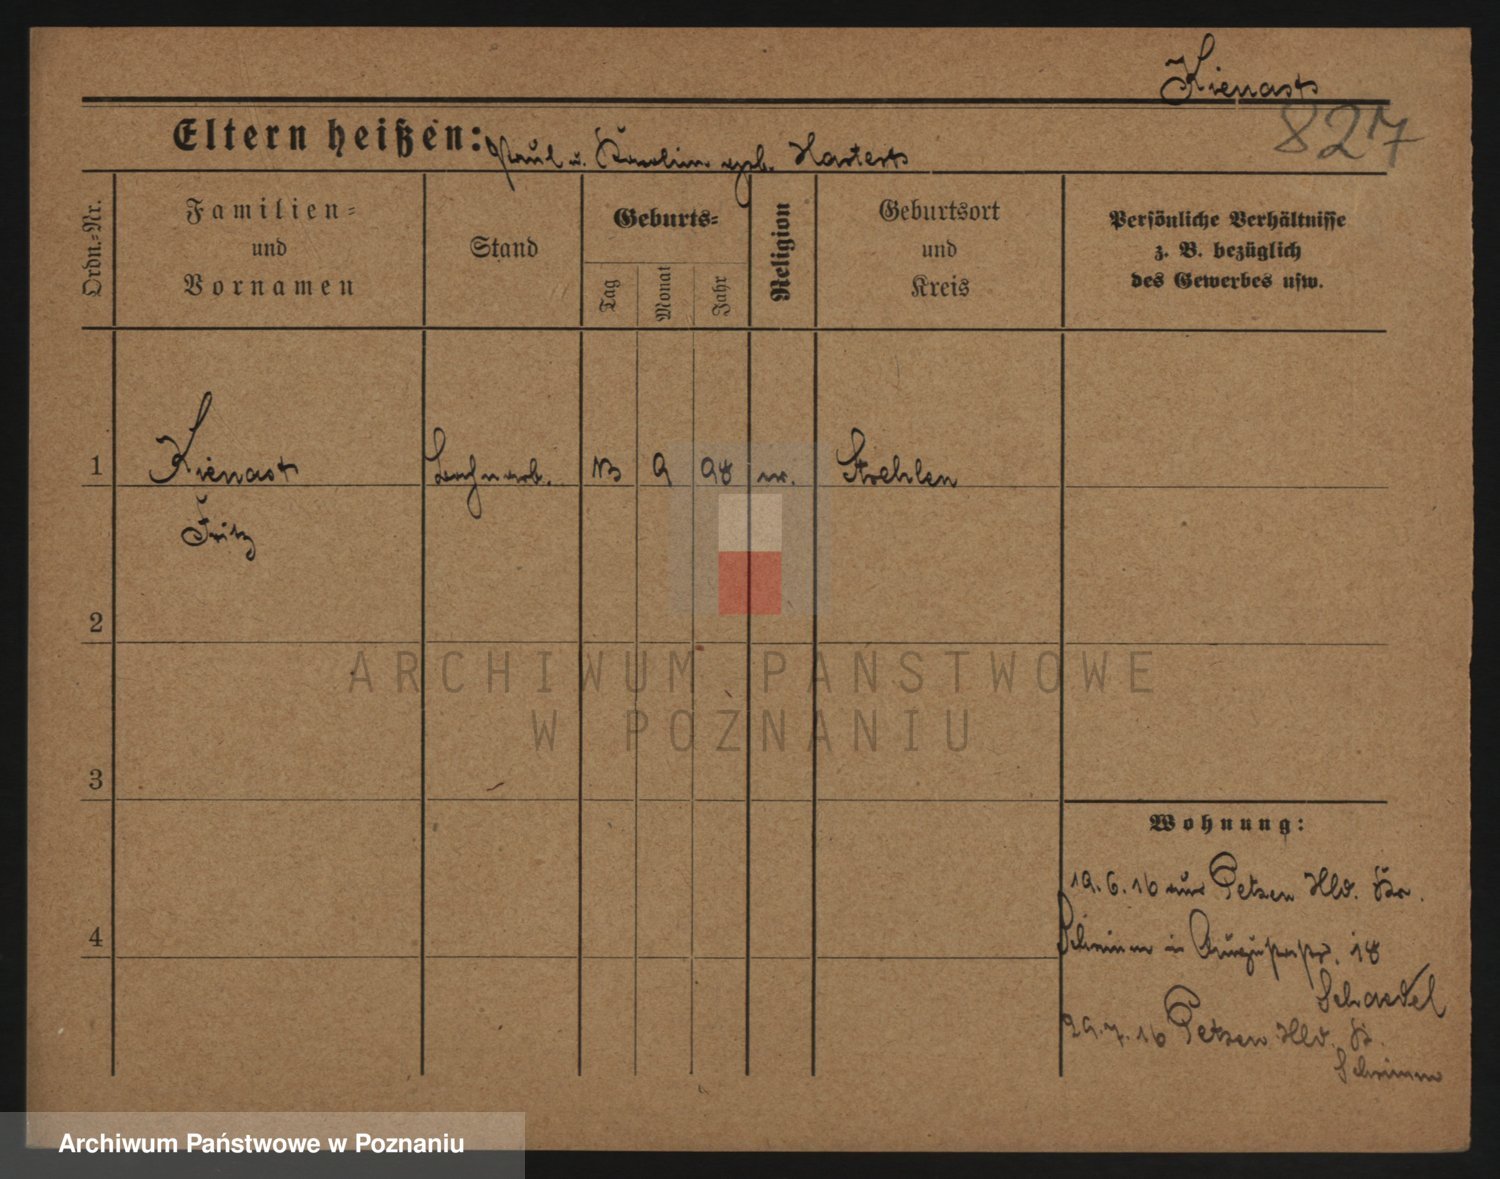 Kienast
827
Eltern heißen: Paul u. Karolin geb. Hartert
Ordn.-Nr.
Familien-
und
Vornamen
Stand
Geburts-
Tag
Monat
Jahr
Religion
Geburtsort
und
Kreis
Persönliche Verhältnisse
z. B. bezüglich
des Gewerbes usw.
1 Kienast 9 98 Strehlen
Fritz
2
3
Wohnung:
19.6.16 Petzen Hld. Kr.
4
Schrimm in 18
Schaedel
29.7.16 Petzen Hld. Kr.
Schrimm
ARCHIWUM PAŃSTWOWE
W POZNANIU
Archiwum Państwowe w Poznaniu